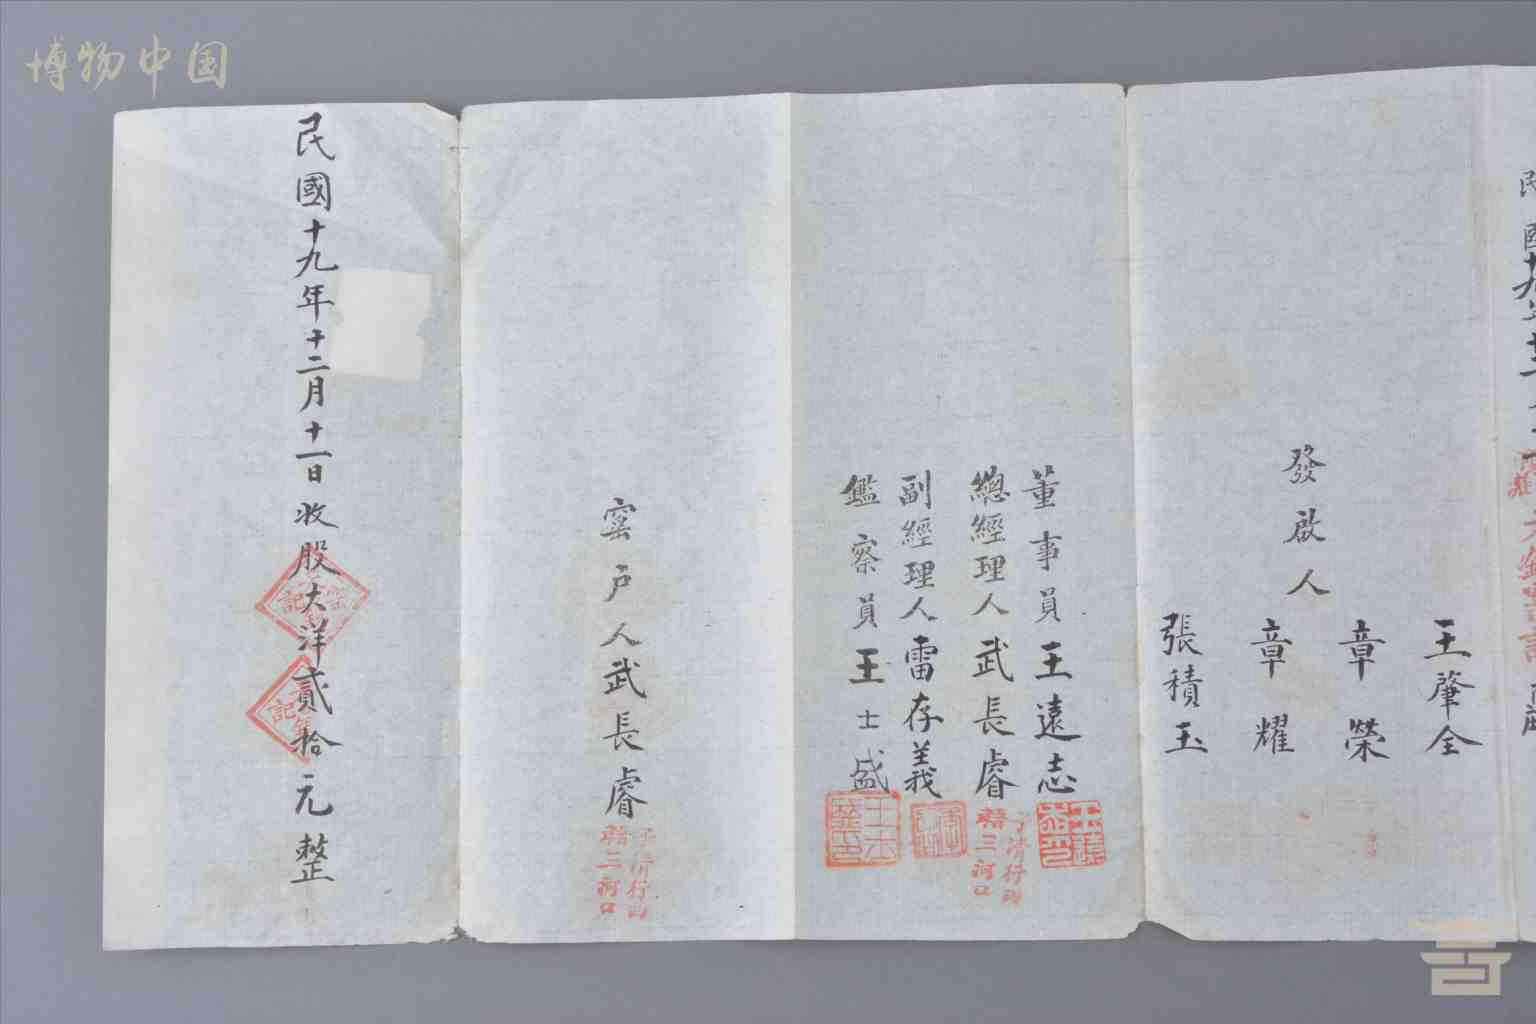 博物中国
發啟人
王肇全
章榮
章耀
張積玉
董事員王遠志
總經理人武長睿
副經理人雷存義
鑑察員王士盛
窑户人武長睿
民國十九年十二月十一日收股大洋貳拾元整